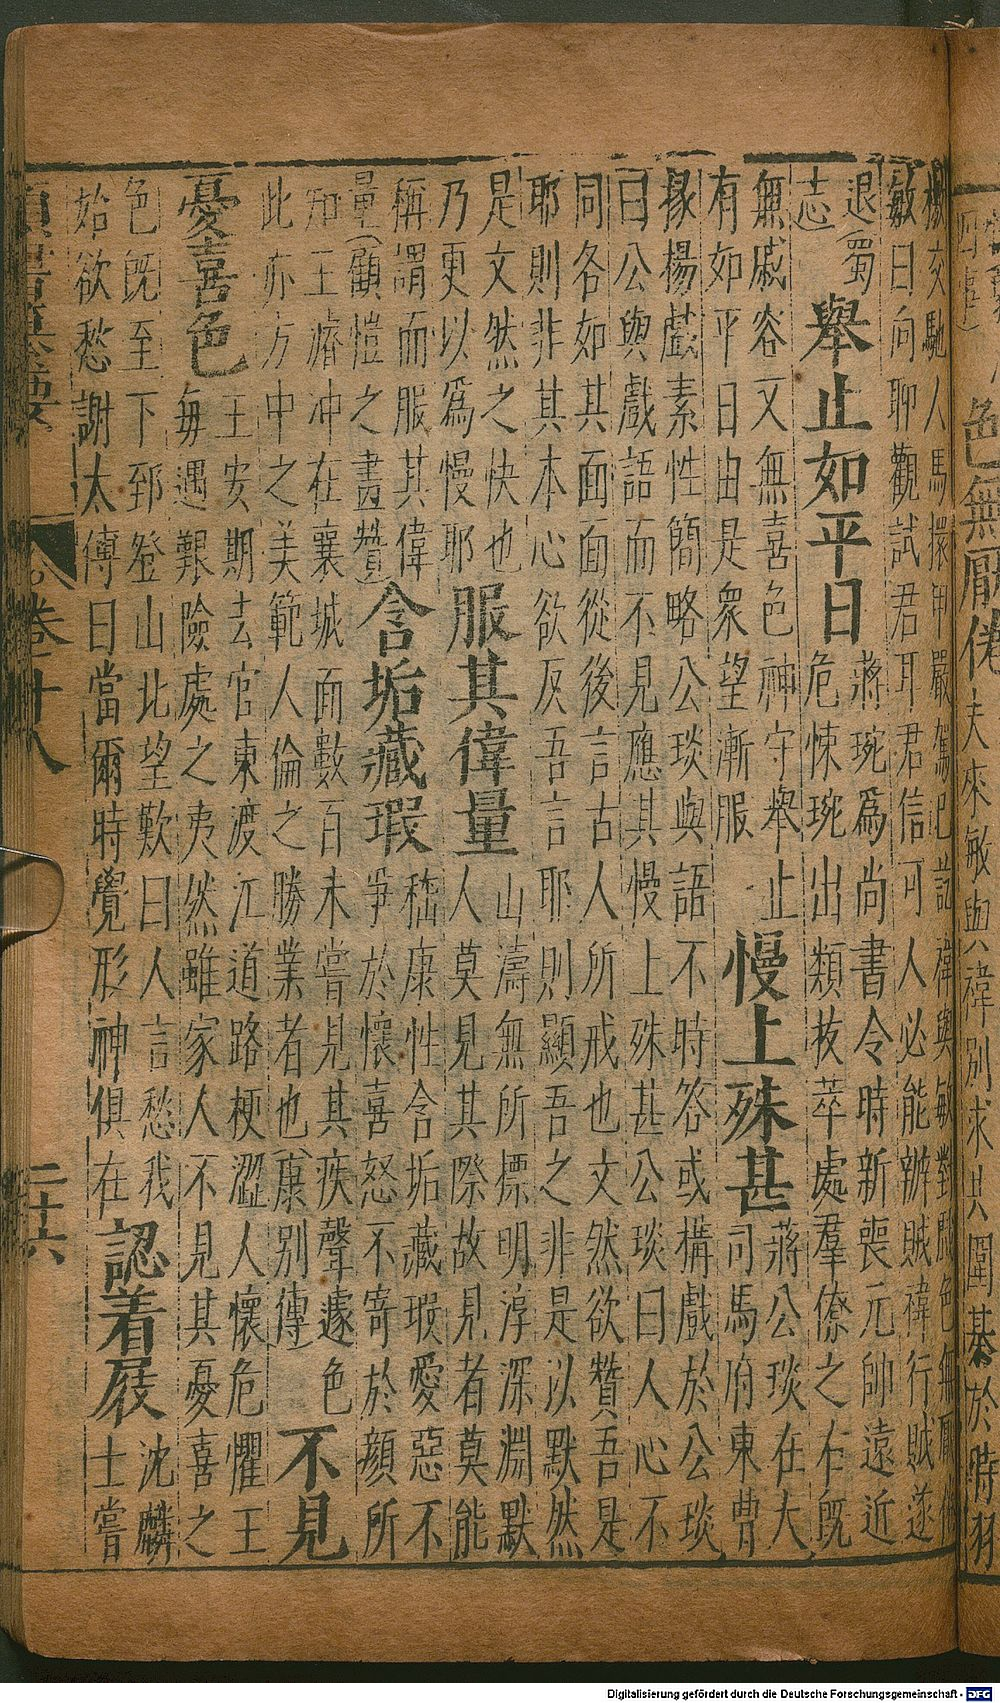 色無厭倦
夫來敏與禕別求共圍棊於時羽
檄交馳人馬擐甲嚴駕已訖禕與敏對戲色無厭倦
敏曰向聊觀試君耳君信可人必能辦賊禕行賊遂
退(蜀
志)
舉止如平日
蔣琬為尚書令時新喪元帥遠近
危悚琬出類拔萃處羣僚之右旣
無戚容又無喜色神守舉止
有如平日由是衆望漸服
慢上殊甚
蔣公琰在大
司馬府東曹
掾楊戲素性簡略公琰與語不時答或構戲於公琰
曰公與戲語而不見應其慢上殊甚公琰曰人心不
同各如其面面從後言古人所戒也文然欲贊吾是
耶則非其本心欲反吾言耶則顯吾之非是以默然
是文然之快也
乃更以爲慢耶
服其偉量
山濤無所標明淳深淵默
人莫見其際故見者莫能
稱謂而服其偉
量(顧愷之畫贊)
含垢藏瑕
嵇康性含垢藏瑕愛惡不
爭於懷喜怒不寄於顔所
知王濬冲在襄城面數百未嘗見其疾聲遽色
此亦方中之美範人倫之勝業者也(康別傳)
不見
憂喜色
王安期去官東渡江道路梗澀人懷危懼王
每遇艱險處之夷然雖家人不見其憂喜之
色旣至下邳登山北望歎曰人言愁我
始欲愁謝太傅曰當爾時覺形神俱在
認着屐
沈麟
士嘗
卷廿八
二十六
Digitalisierung gefördert durch die Deutsche Forschungsgemeinschaft - DFG